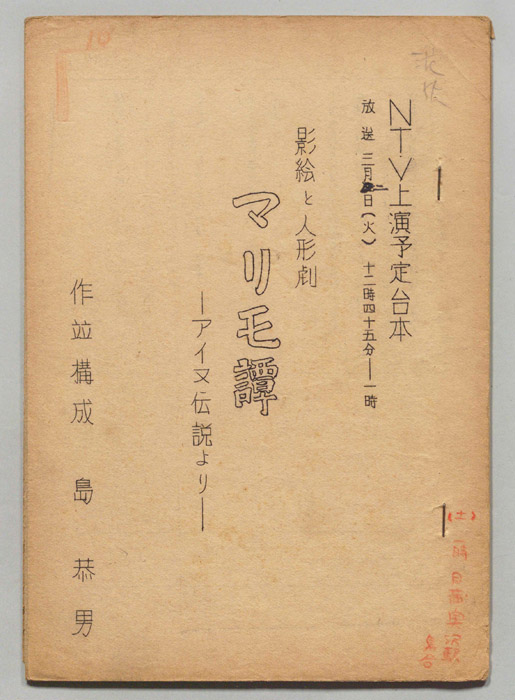 NTV上演予定台本
放送 三月二日(火) 十二時四十五分―一時
影絵と人形劇
マリモ譚
―アイヌ伝説より―
作並構成 島恭男
10
(土)
一時